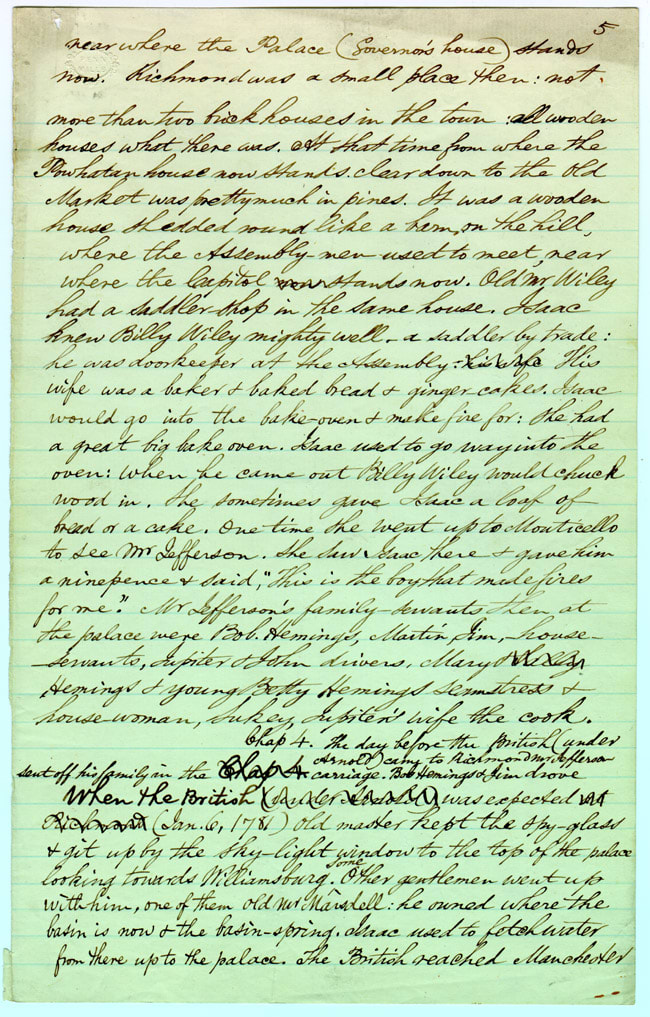 5
near where the Palace (Governor's house) stands
now. Richmond was a small place then: not
more than two brick houses in the town: all wooden
houses what there was. At that time from where the
Powhatan house now stands clear down to the Old
Market was pretty much in pines. It was a wooden
house shedded round like a barn on the hill,
where the Assembly-men used to meet, near
where the Capitol now stands now. Old Mr Wiley
had a saddler-shop in the same house. Isaac
knew Billy Wiley mighty well - a saddler by trade:
he was doorkeeper at the Assembly: his wife His
wife was a baker & baked bread & ginger-cakes. Isaac
would go into the bake-oven & make fire for: She had
a great big bake oven. Isaac used to go way into the
oven: when he came out Billy Wiley would chuck
wood in. She sometimes gave Isaac a loaf of
bread or a cake. One time she went up to Monticello
to see Mr Jefferson. She saw Isaac there & gave him
a ninepence & said, "This is the boy that made fires
for me." Mr Jefferson's family-servants then at
the palace were Bob. Hemings, Martin, Jim, - house-
servants, Jupiter & John drivers, Mary
Hemings & young Betty Hemings seamstress &
house-woman, Sukey, Jupiter's wife the cook.
Chap 4. The day before the British (under
Arnold) came to Richmond Mr Jefferson
sent off his family in the Chap 4 carriage. Bob Hemings & Jim drove
When the British (under Arnold) was expected at
Richmond (Jan. 6, 1781) old master kept the spy-glass
& git up by the sky-light window to the top of the palace
looking towards Williamsburg. Some Other gentlemen went up
with him, one of them old Mr Marsdell: he owned where the
basin is now & the basin-spring. Isaac used to fetch water
from there up to the palace. The British reached Manchester